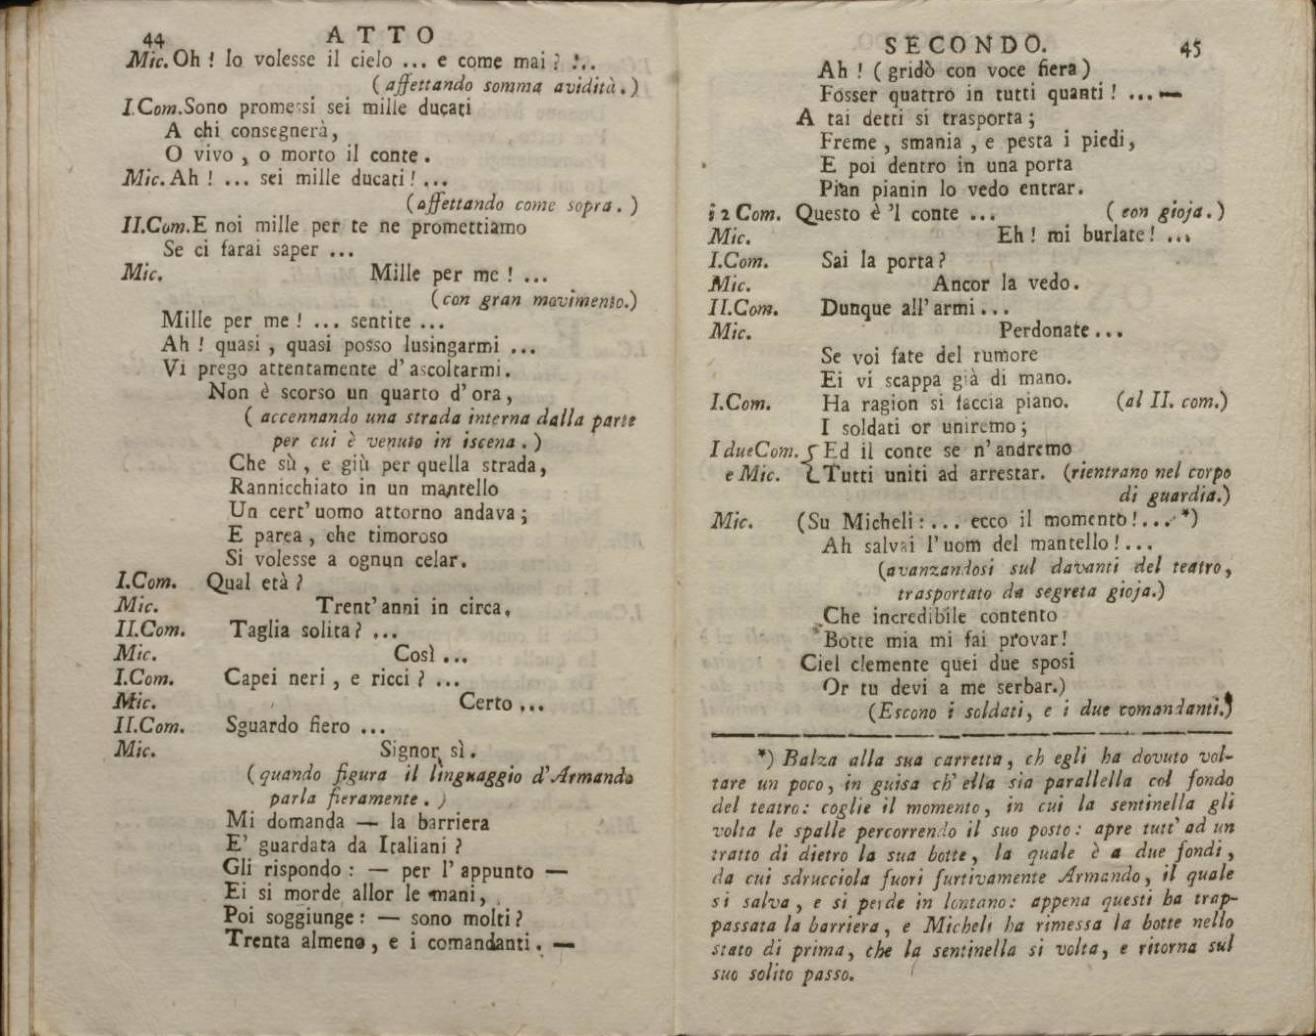 44 ATTO
Mic. Oh ! Io volesse il cielo ... e come mai ? ...
( affettando somma avidità . )
I.Com. Sono promessi sei mille ducati
A chi consegnerà ,
O vivo , o morto il conte .
Mic. Ah ! ... sei mille ducati ! ...
( affettando come sopra . )
II.Com. E noi mille per te ne promettiamo
Se ci farai saper ...
Mic. Mille per me ! ...
( con gran movimento.)
Mille per me ! ... sentite ...
Ah ! quasi , quasi posso lusingarmi ...
Vi prego attentamente d' ascoltarmi .
Non è scorso un quarto d' ora ,
( accennando una strada interna dalla parte
per cui è venuto in iscena . )
Che sù , e giù per quella strada ,
Rannicchiato in un mantello
Un cert' uomo attorno andava ;
E parea , che timoroso
Si volesse a ognun celar .
I.Com. Qual età ?
Mic. Trent' anni in circa .
II.Com. Taglia solita ? ...
Mic. Così ...
I.Com. Capei neri , e ricci ? ...
Mic. Certo ...
II.Com. Sguardo fiero ...
Mic. Signor sì .
( quando figura il linguaggio d' Armando
parla fieramente . )
Mi domanda — la barriera
E' guardata da Italiani ?
Gli rispondo : — per l' appunto —
Ei si morde allor le mani ,
Poi soggiunge : — sono molti ?
Trenta almeno , e i comandanti . —
SECONDO. 45
Ah ! ( gridò con voce fiera )
Fosser quattro in tutti quanti ! ... —
A tai detti si trasporta ;
Freme , smania , e pesta i piedi ,
E poi dentro in una porta
Pian pianin lo vedo entrar .
i 2 Com. Questo è 'l conte ... ( con gioja . )
Mic. Eh ! mi burlate ! ...
I.Com. Sai la porta ?
Mic. Ancor la vedo .
II.Com. Dunque all' armi ...
Mic. Perdonate ...
Se voi fate del rumore
Ei vi scappa già di mano .
I.Com. Ha ragion si faccia piano . (al II. com.)
I soldati or uniremo ;
I due Com. { Ed il conte se n' andremo
e Mic. { Tutti uniti ad arrestar . (rientrano nel corpo
di guardia.)
Mic. (Su Micheli : ... ecco il momento ! ... *)
Ah salvai l' uom del mantello ! ...
(avanzandosi sul davanti del teatro,
trasportato da segreta gioja.)
Che incredibile contento
Botte mia mi fai provar !
Ciel clemente quei due sposi
Or tu devi a me serbar .)
(Escono i soldati, e i due comandanti.)
*) Balza alla sua carretta, ch egli ha dovuto vol-
tare un poco, in guisa ch' ella sia parallella col fondo
del teatro: coglie il momento, in cui la sentinella gli
volta le spalle percorrendo il suo posto: apre tutt' ad un
tratto di dietro la sua botte, la quale è a due fondi,
da cui sdrucciola fuori furtivamente Armando, il quale
si salva, e si perde in lontano: appena questi ha trap-
passata la barriera, e Micheli ha rimessa la botte nello
stato di prima, che la sentinella si volta, e ritorna sul
suo solito passo.